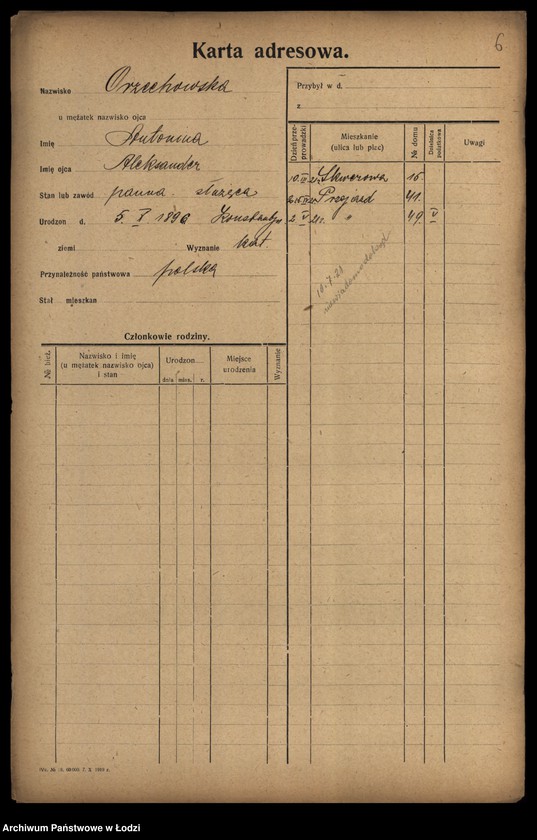 6
Karta adresowa.
Nazwisko Orzechowska
u mężatek nazwisko ojca
Imię Antonina
Imię ojca Aleksander
Stan lub zawód panna służąca
Urodzon d. 5. X 1896
ziemi Wyznanie kat.
Przynależność państwowa polska
Stał mieszkan
Przybył w d.
z
Dzień przeprowadzki
Mieszkanie (ulica lub plac)
№ domu
Dzielnica podatkowa
Uwagi
Skwerowa 15.
Przejazd 41.
2. V 21 r. " 49. V
Członkowie rodziny.
№ bież.
Nazwisko i imię
(u mężatek nazwisko ojca)
i stan
Urodzon
dnia mies. r.
Miejsce
urodzenia
Wyznanie
Archiwum Państwowe w Łodzi